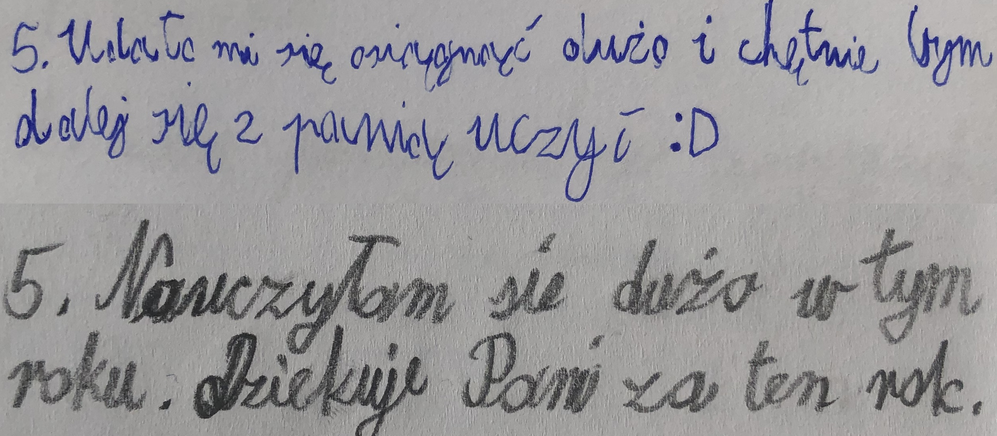 5. Udało mi się osiągnąć dużo i chętnie bym
dalej się z panią uczył :D
5. Nauczyłam sie dużo w tym
roku. Dziekuje Pani za ten rok.